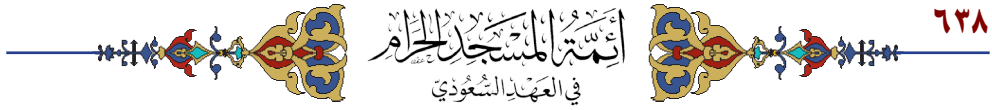 ٦٣٨
أَئِمَّةُ المَسْجِدِ الحَرَامِ
فِي العَهْدِ السُّعُودِيِّ